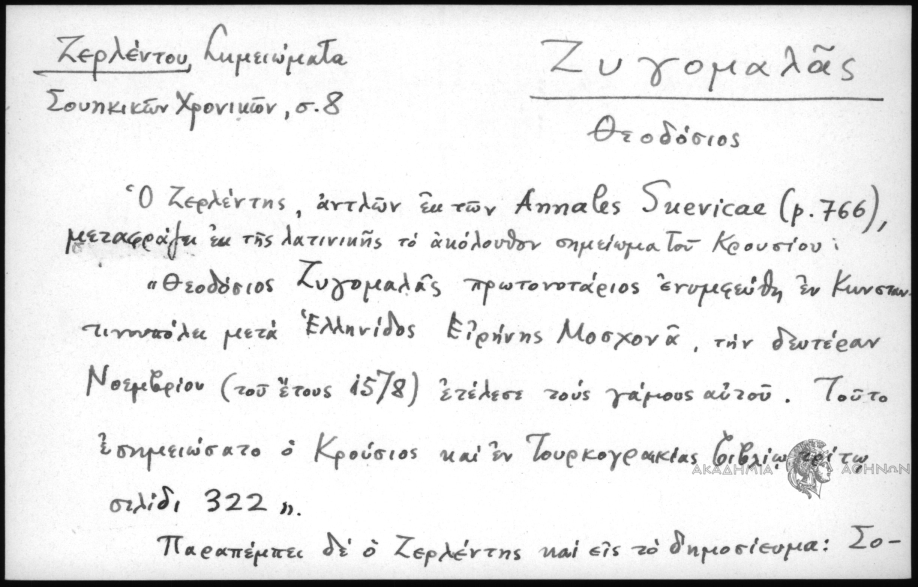 Ζερλέντου, Σημειώματα
Σουηκικῶν Χρονικῶν, σ. 8
Ζυγομαλᾶς
Θεοδόσιος
Ὁ Ζερλέντης, ἀντλῶν ἐκ τῶν Annales Suevicae (p. 766),
μεταφράζει ἐκ τῆς λατινικῆς τὸ ἀκόλουθον σημείωμα τοῦ Κρουσίου:
"Θεοδόσιος Ζυγομαλᾶς πρωτονοτάριος ἐνυμφεύθη ἐν Κωνσταν-
τινουπόλει μετὰ Ἑλληνίδος Εἰρήνης Μοσχονᾶ, τὴν δευτέραν
Νοεμβρίου (τοῦ ἔτους 1578) ἐτέλεσε τοὺς γάμους αὐτοῦ. Τοῦτο
ἐσημειώσατο ὁ Κρούσιος καὶ ἐν Τουρκογραικίας βιβλίῳ τρίτῳ
σελίδι 322".
Παραπέμπει δὲ ὁ Ζερλέντης καὶ εἰς τὸ δημοσίευμα: Σο-
ΑΚΑΔΗΜΙΑ ΑΘΗΝΩΝ